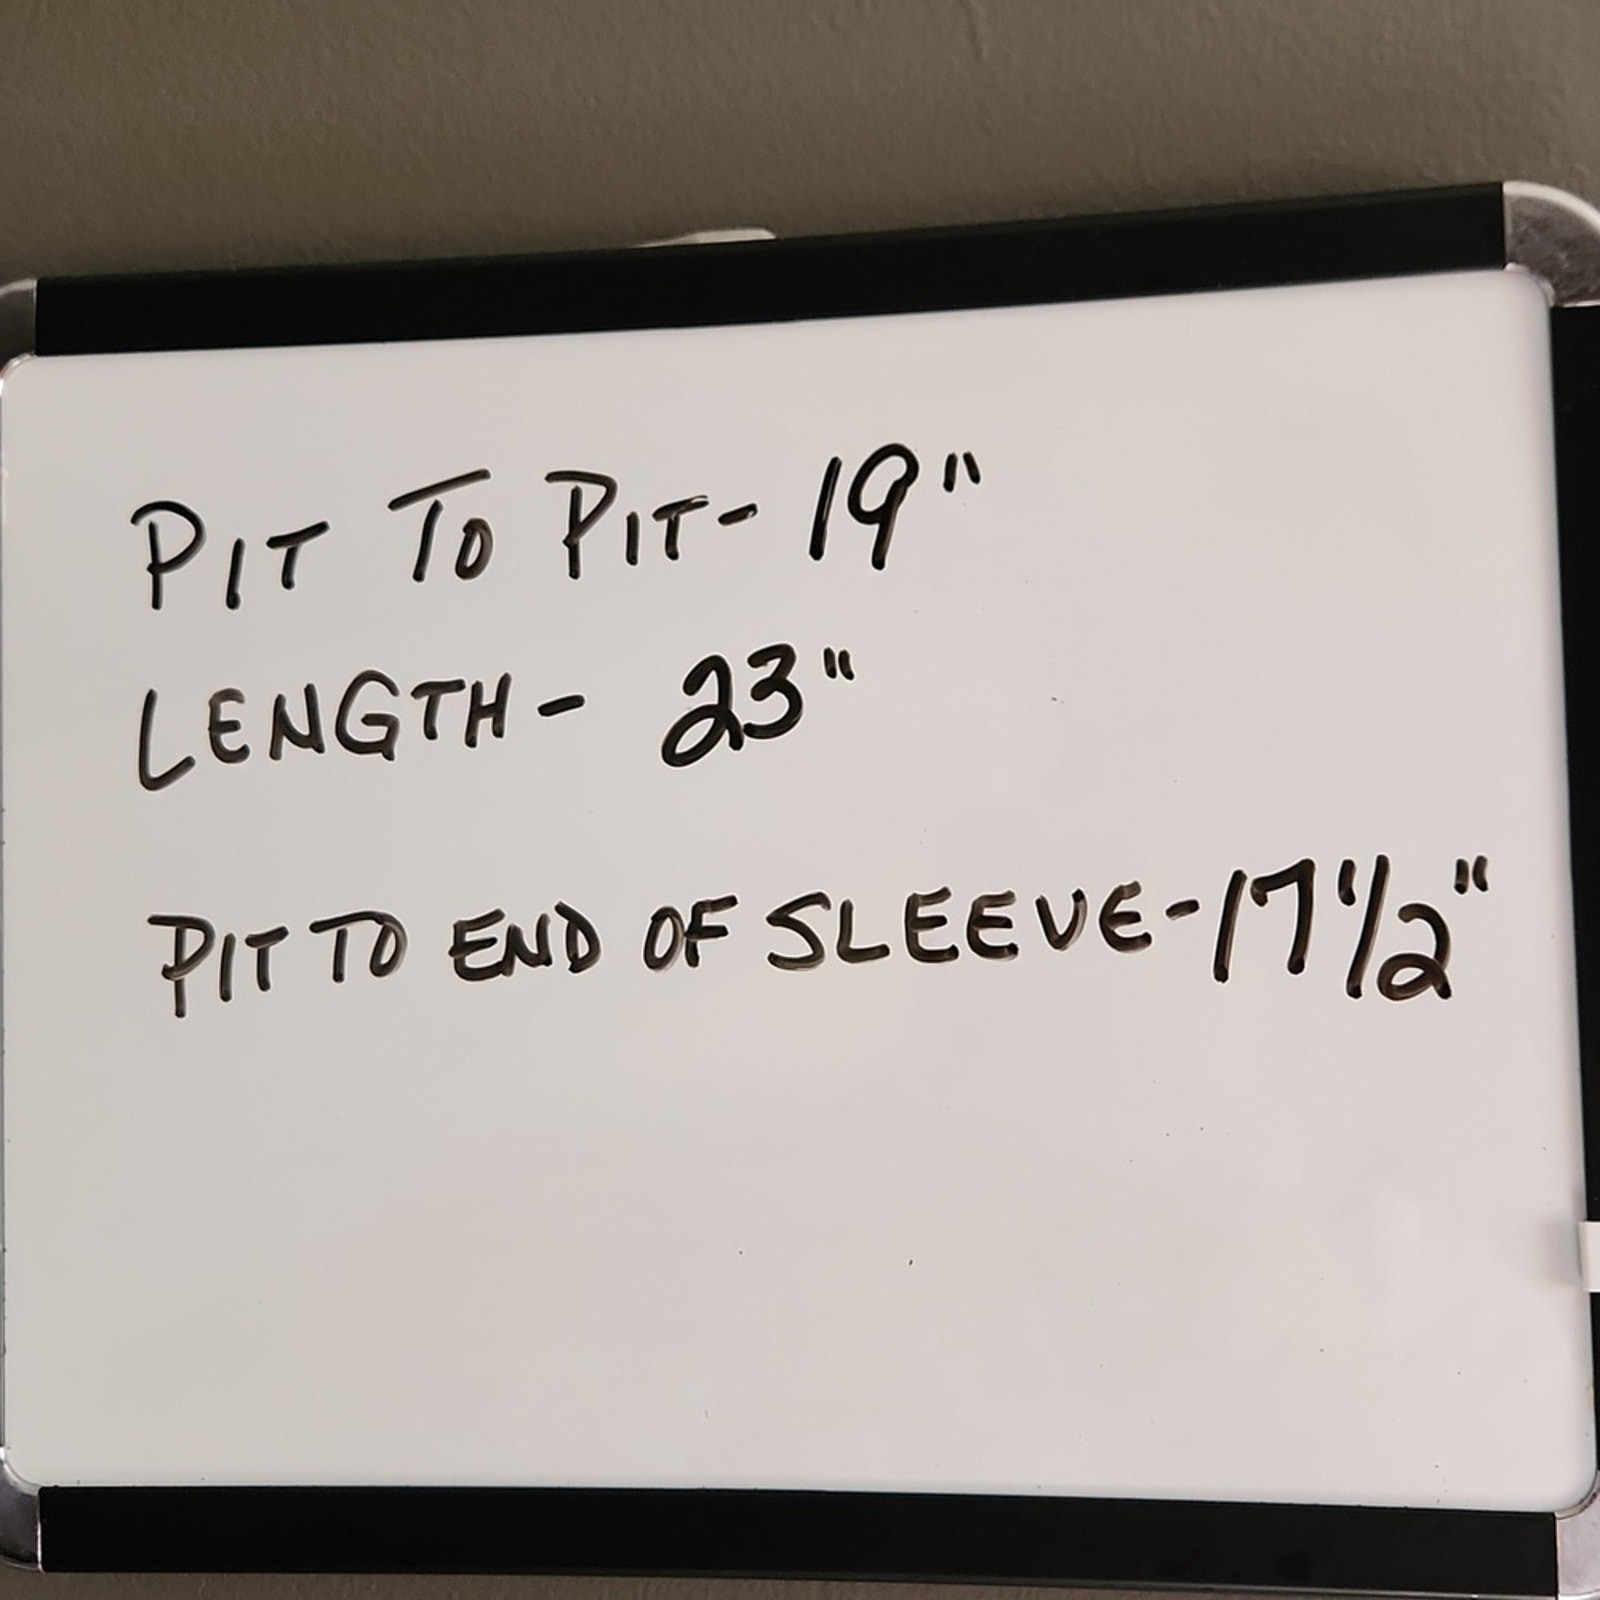 PIT TO PIT- 19"
LENGTH- 23"
PIT TO END OF SLEEVE-17 1/2"